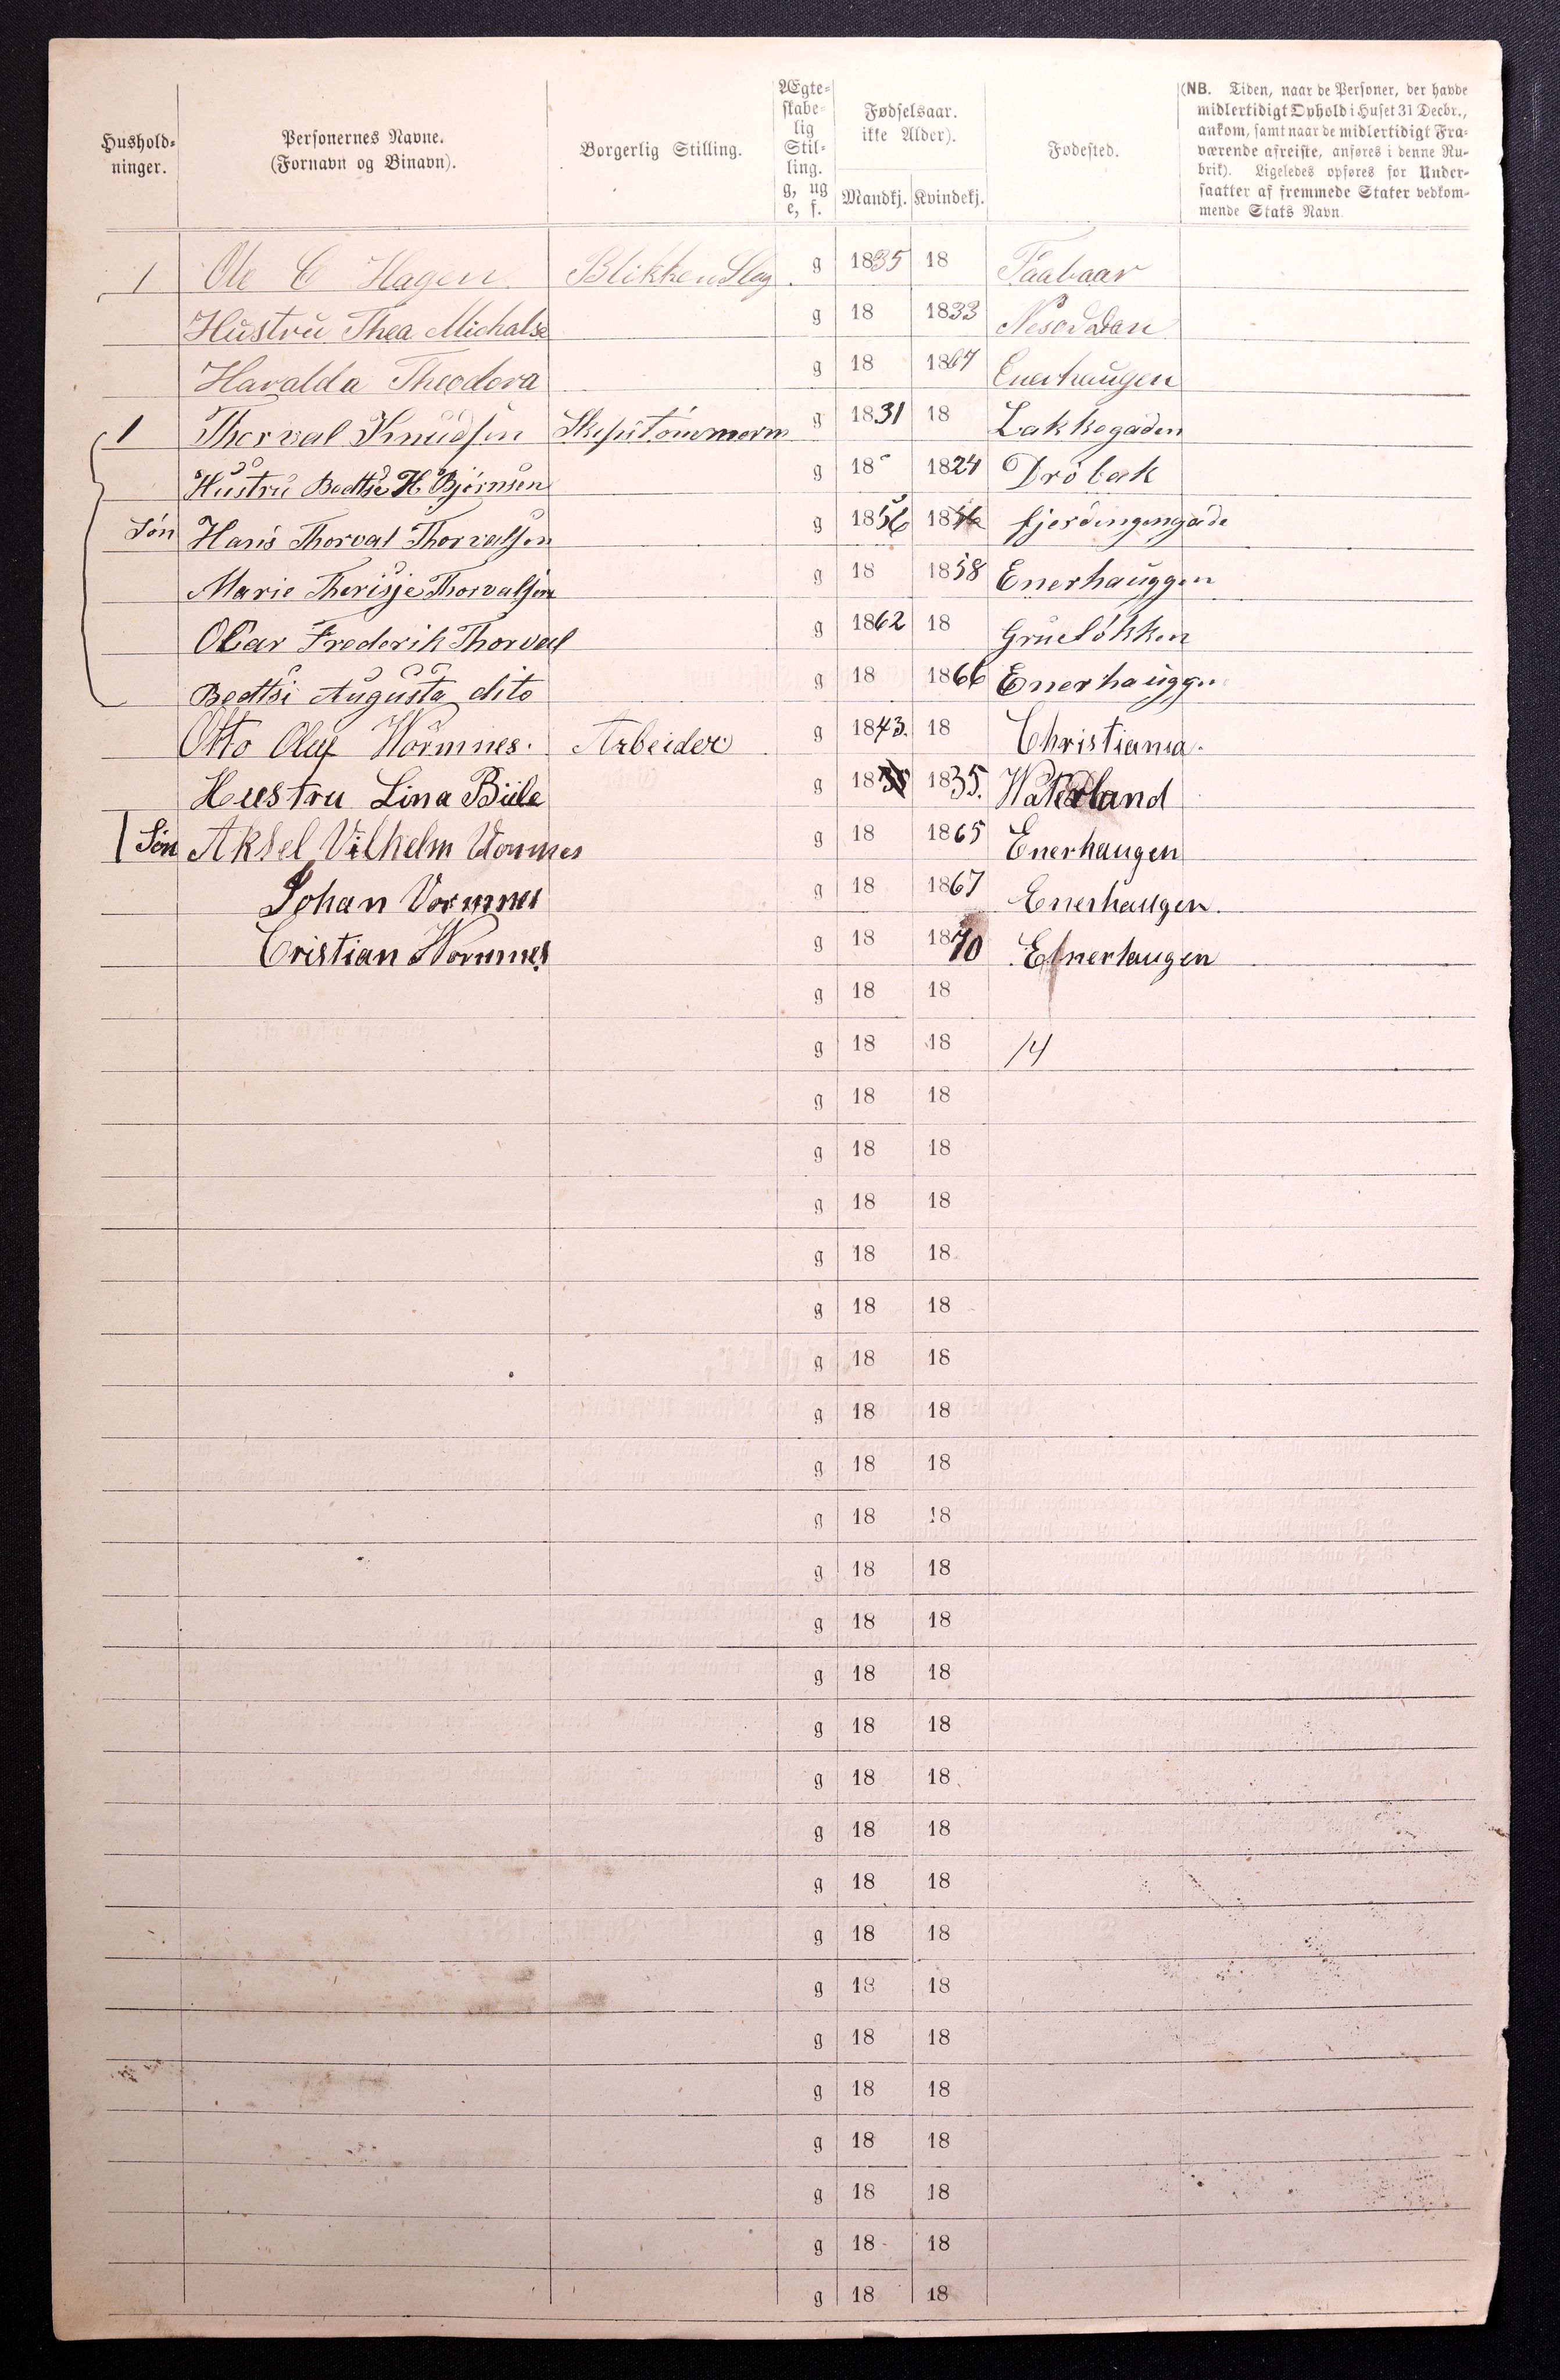 Hushold-
ninger.
Personernes Navne.
(Fornavn og Binavn).
Borgerlig Stilling.
Ægte-
skabe-
lig
Stil-
ling.
g, ug
e, f.
Fødselsaar.
ikke Alder).
Mandkj. Kvindekj.
Fødested.
(NB. Tiden, naar de Personer, der havde
midlertidigt Ophold i Huset 31 Decbr.,
ankom, samt naar de midlertidigt Fra-
værende afreiste, anføres i denne Ru-
brik). Ligeledes opføres for Under-
saatter af fremmede Stater vedkom-
mende Stats Navn.
1 Ole C Hagen BlikkenSlag. g 1835 18 Faabaar
Hustru Thea Michalse g 18 1833 Nesodden
Haralda Theodora g 18 1867 Enerhaugen
1 Thorval Knudsen Skipstømmerm g 1831 18 Lakkegaden
Hustru Bodtse H Bjørnsen g 18 1824 Drøbak
Søn Hans Thorval Thorvalsen g 1856 18 fjerdingengade
Marie Therisje Thorvalsen g 18 1858 Enerhauggen
Olar Frederik Thorval g 1862 18 Grueløkken
Bodtsi Augusta dito g 18 1866 Enerhaugge
Otto Oluf Wormnes. Arbeider g 1843. 18 Christiania.
Hustru Lina Biile g 18 1835. Waterland
Søn Aksel Vilhelm Vormnes g 18 1865 Enerhaugen
Johan Vormnes g 18 1867 Enerhaugen.
Cristian Wormnes g 18 1870 Enerhaugen
g 18 18
g 18 18 14
g 18 18
g 18 18
g 18 18
g 18 18
g 18 18
g 18 18
g 18 18
g 18 18
g 18 18
g 18 18
g 18 18
g 18 18
g 18 18
g 18 18
g 18 18
g 18 18
g 18 18
g 18 18
g 18 18
g 18 18
g 18 18
g 18 18
g 18 18
g 18 18